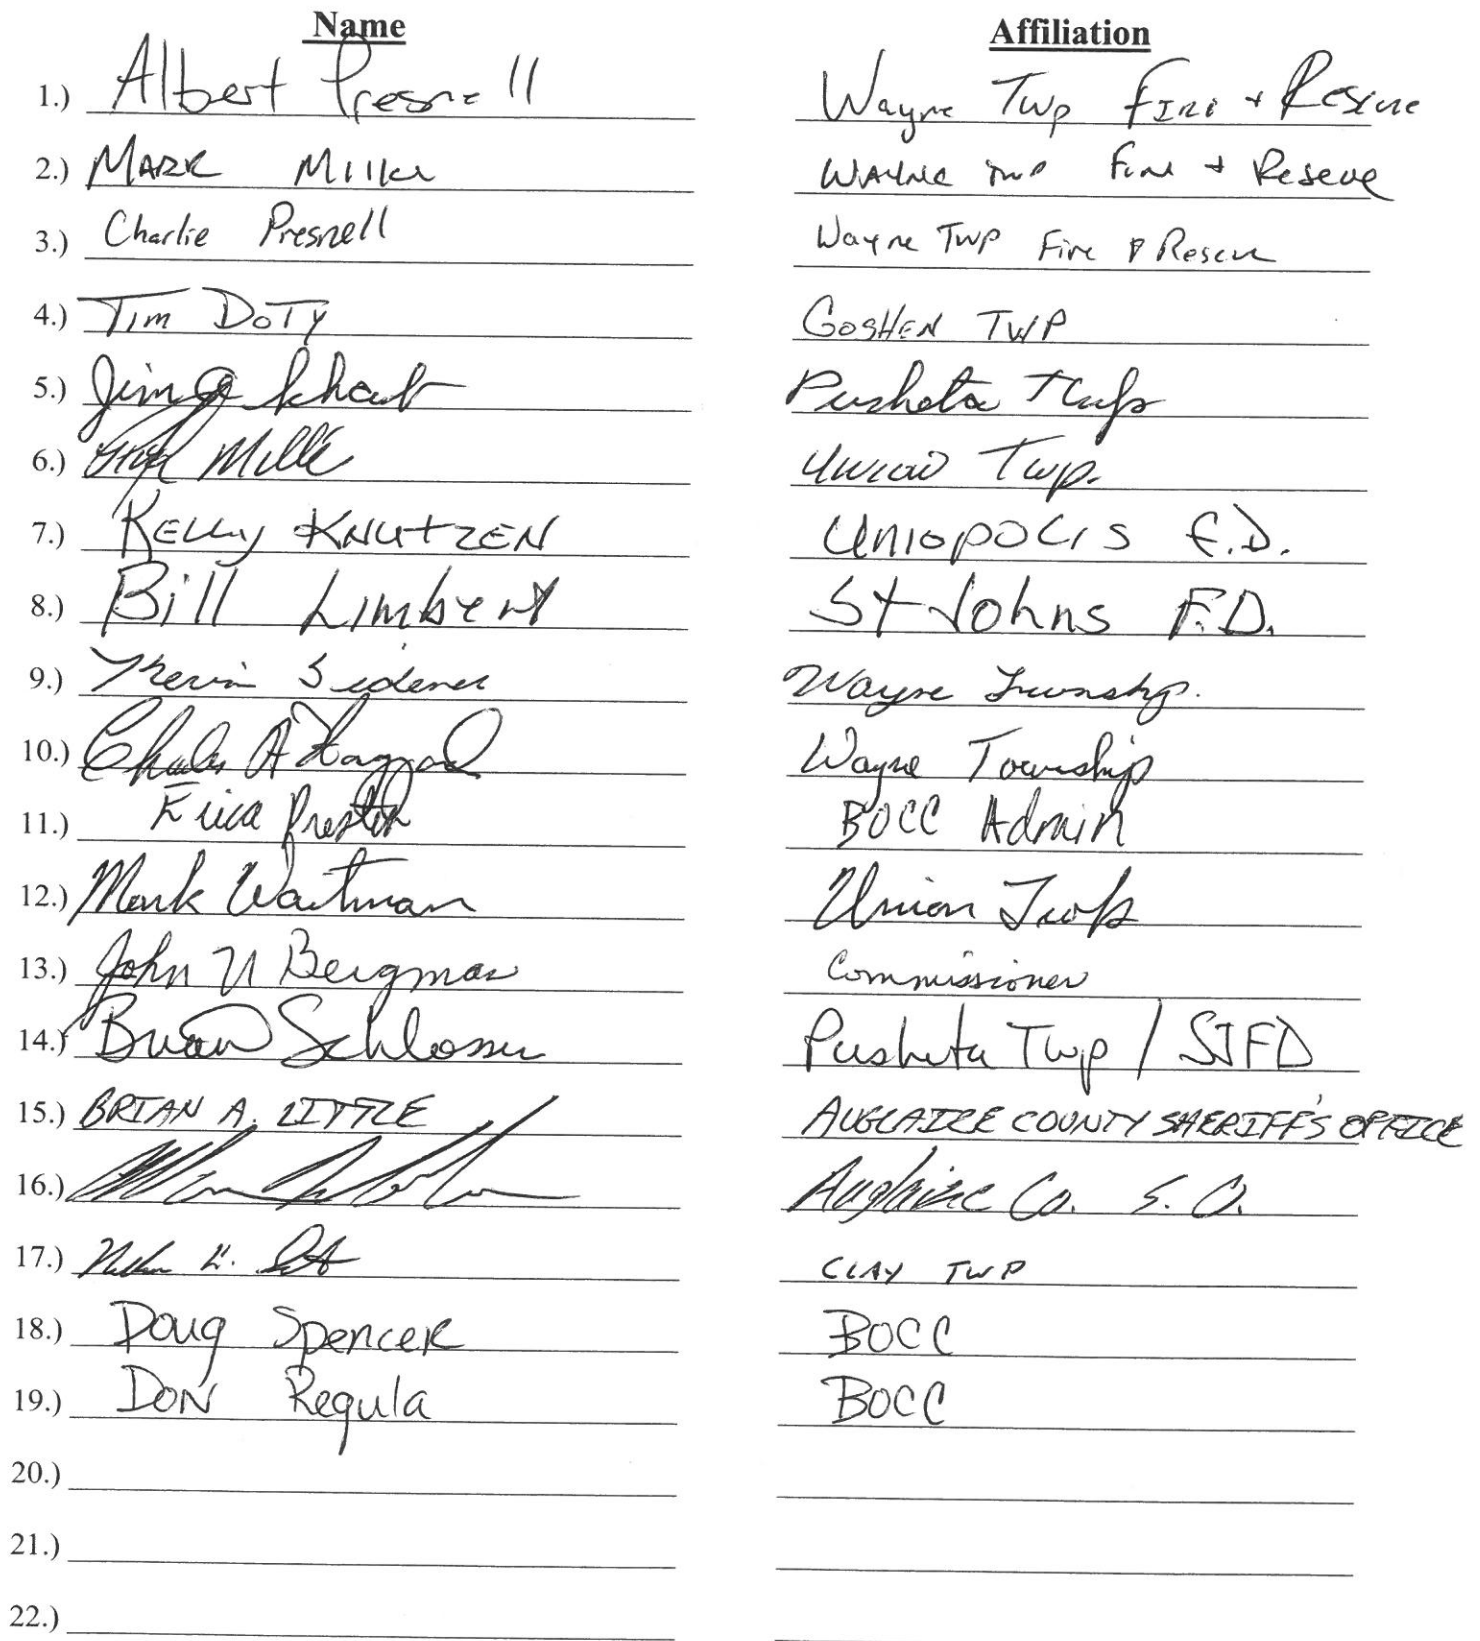 Name Affiliation
1.) Albert Presnell Wayne Twp Fire + Rescue
2.) Mark Miller Wayne Twp Fire + Rescue
3.) Charlie Presnell Wayne Twp Fire & Rescue
4.) Tim Doty Goshen Twp
5.) Jim Pusheta Twp
6.) Union Twp.
7.) Kelly Knutzen Uniopolis F.D.
8.) Bill Limbert St Johns F.D.
9.) Kevin Sidener Wayne Township.
10.) Charles A Haggard Wayne Township
11.) Erica Preston BOCC Admin
12.) Mark Waitman Union Twp
13.) John N Bergman Commissioner
14.) Brian Schlosser Pusheta Twp / SJFD
15.) BRIAN A. LITTLE AUGLAIZE COUNTY SHERIFF'S OFFICE
16.) Auglaize Co. S.O.
17.) CLAY TWP
18.) Doug Spencer BOCC
19.) Don Regula BOCC
20.)
21.)
22.)